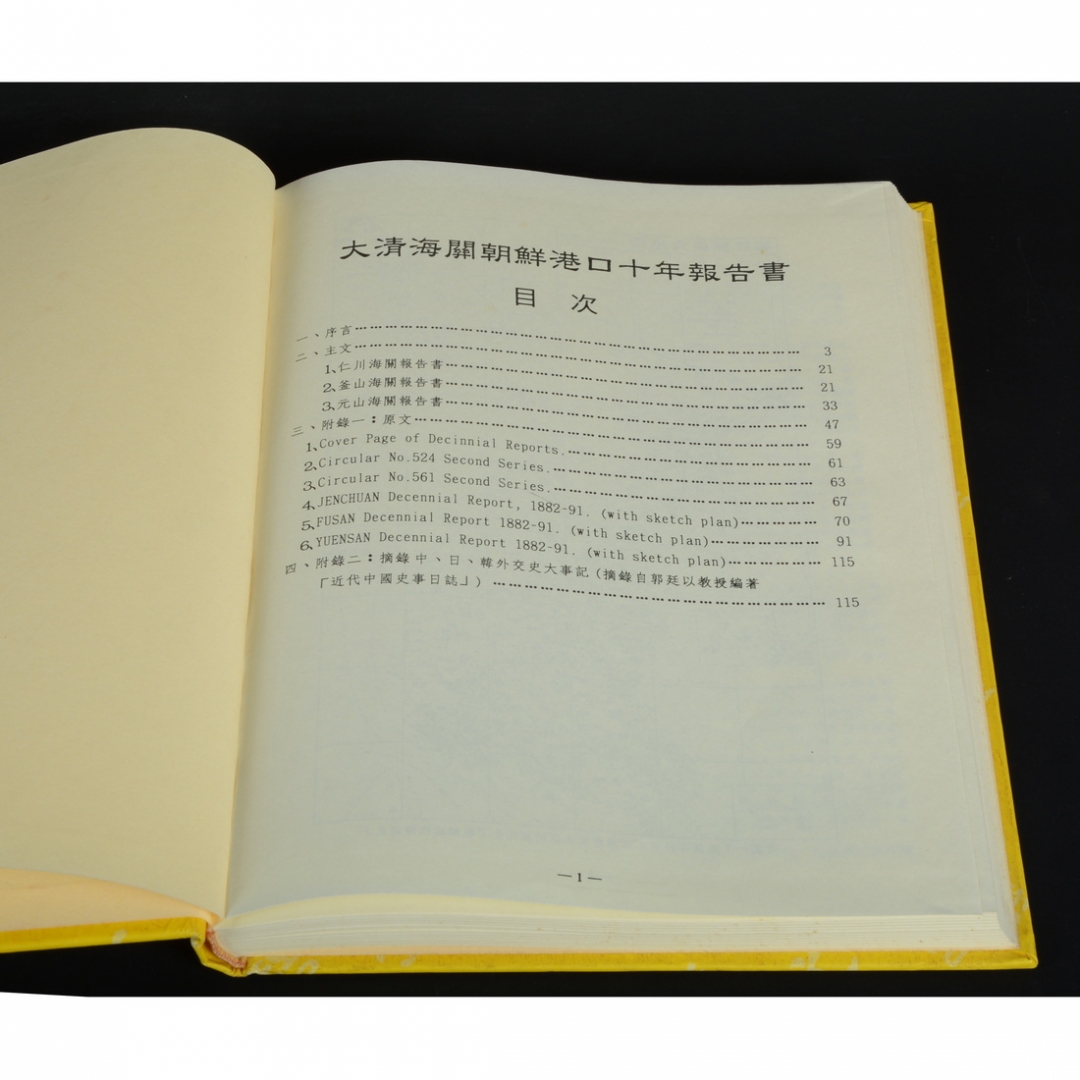 大清海關朝鮮港口十年報告書
目 次
一、序言 …………………………………………………… 3
二、主文 …………………………………………………… 21
1、仁川海關報告書 …………………………………………… 21
2、釜山海關報告書 …………………………………………… 33
3、元山海關報告書 …………………………………………… 47
三、附錄一：原文 …………………………………………… 59
1、Cover Page of Decinnial Reports. ……………………………… 61
2、Circular No.524 Second Series. ……………………………… 63
3、Circular No.561 Second Series. ……………………………… 67
4、JENCHUAN Decennial Report, 1882-91. (with sketch plan) …………… 70
5、FUSAN Decennial Report 1882-91. (with sketch plan) …………… 91
6、YUENSAN Decennial Report 1882-91. (with sketch plan) …………… 115
四、附錄二：摘錄中、日、韓外交史大事記（摘錄自郭廷以教授編著
「近代中國史事日誌」） …………………………………………… 115
—1—